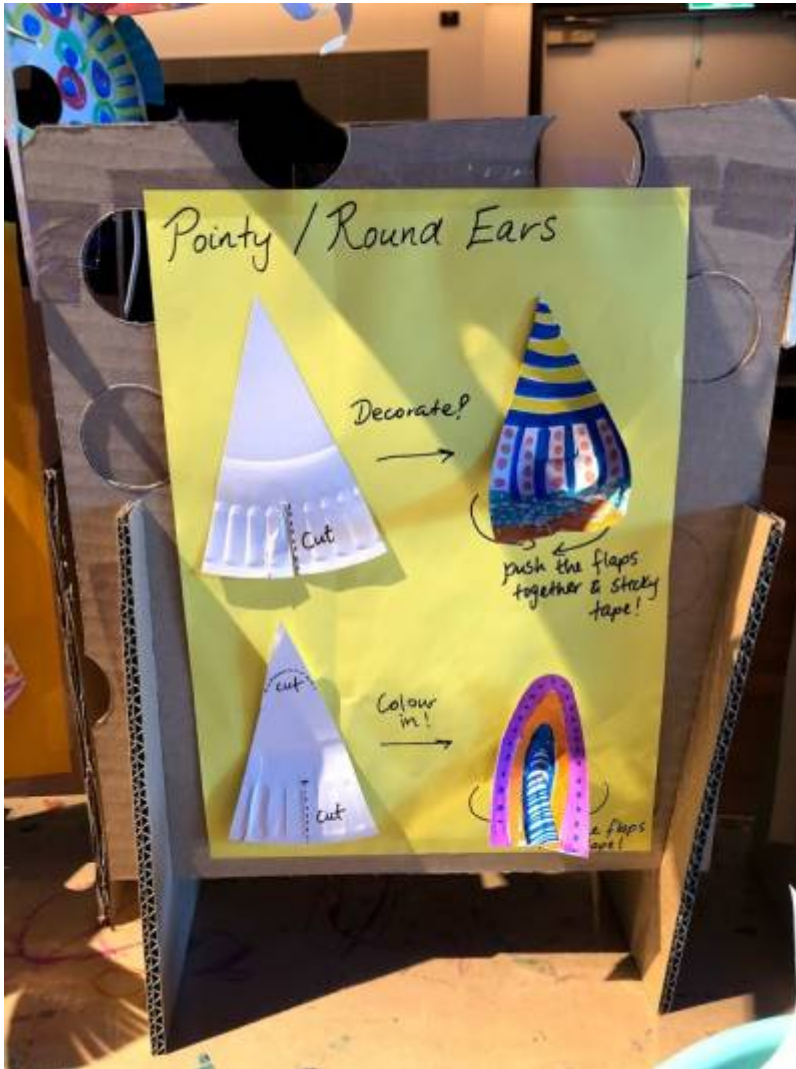 Pointy / Round Ears
Decorate!
cut
push the flaps
together & sticky
tape!
cut
Colour
in!
cut
flaps